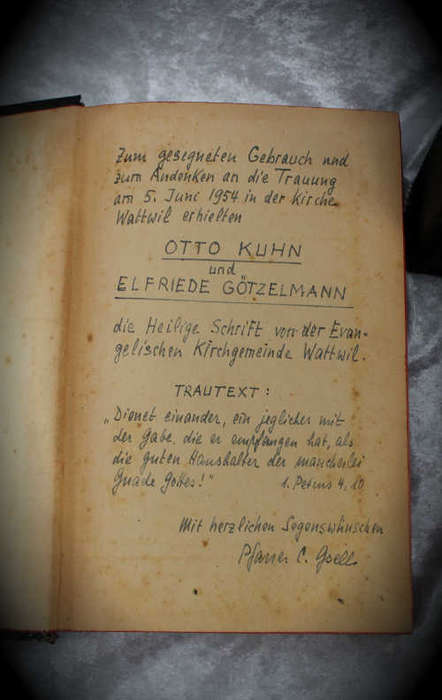 Zum gesegneten Gebrauch und
zum Andenken an die Trauung
am 5. Juni 1954 in der Kirche
Wattwil erhielten
OTTO KUHN
und
ELFRIEDE GÖTZELMANN
die Heilige Schrift von der Evan-
gelischen Kirchgemeinde Wattwil.
TRAUTEXT:
„Dienet einander, ein jeglicher mit
der Gabe, die er empfangen hat, als
die guten Haushalter der mancherlei
Gnade Gottes!"
1. Petrus 4, 10
Mit herzlichen Segenswünschen
Pfarrer C. Gsell